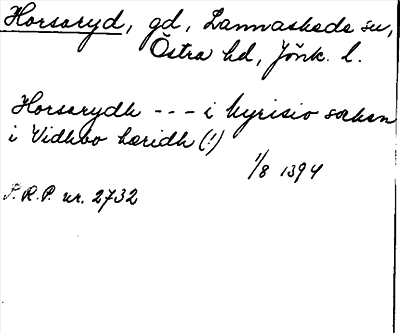 Horsaryd, gd, Lannaskede sn,
Östra hd, Jönk. l.
Horsarydh --- i kyrisio sokan
i Vidhbo hæridh (!)
1/8 1394
S.R.P. nr. 2732